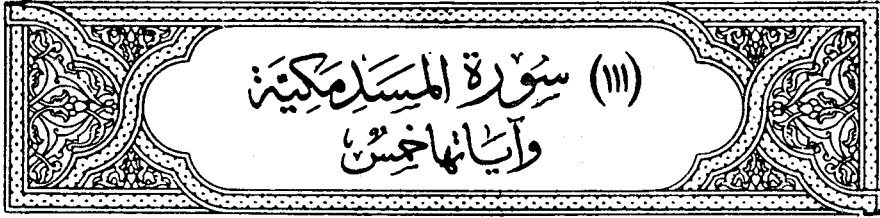 (١١١) سُورَة المَسَدِ مَكِيَّة
وَآيَاتهَا خَمسٌ